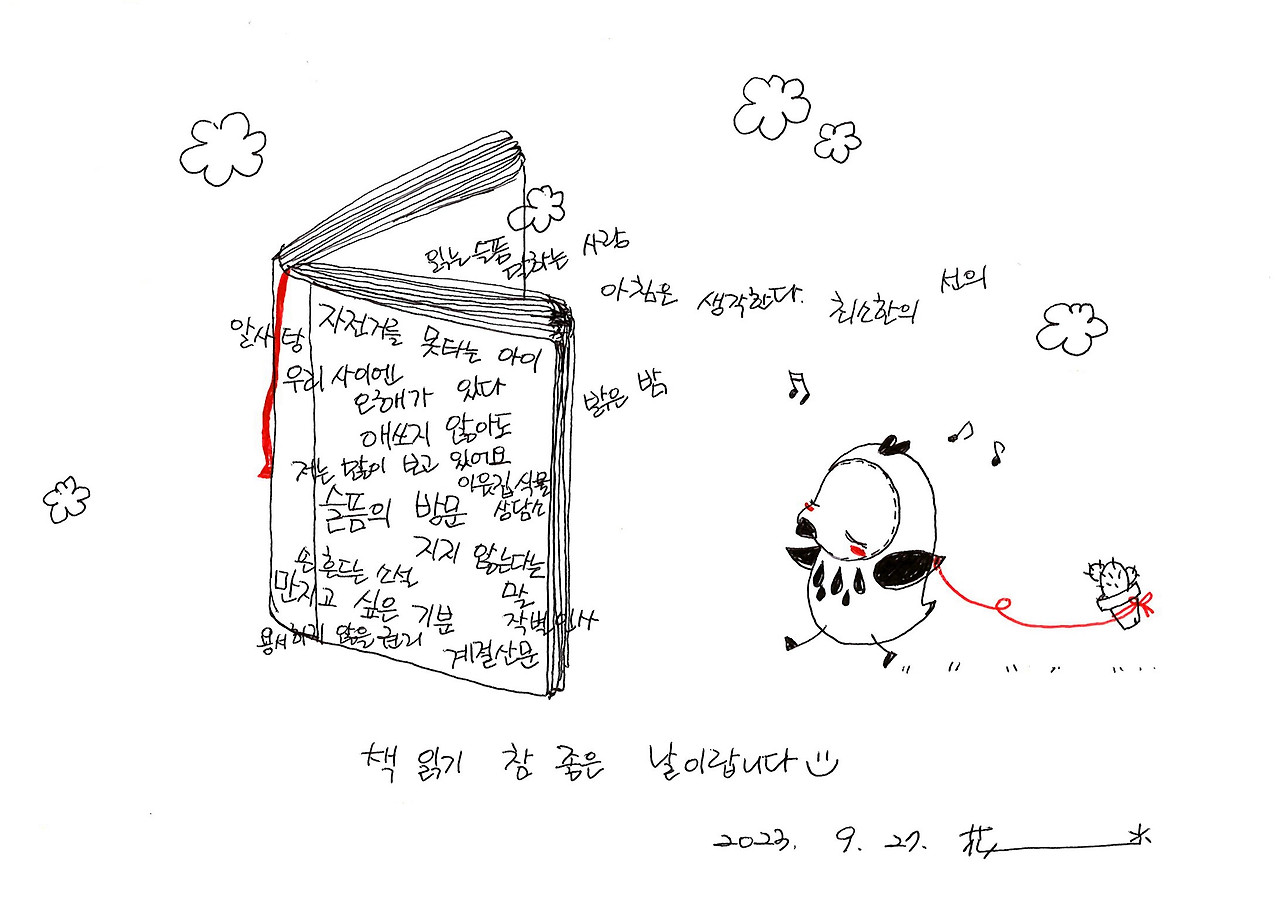 읽는 슬픔
말하는 사랑
아침은 생각한다.
최소한의 선의
알사탕
자전거를 못타는 아이
우리 사이엔
오해가 있다
밝은 밤
애쓰지 않아도
저는 많이 보고 있어요
이웃집 식물
상담소
슬픔의 방문
지지 않는다는
말
손 흔드는 소설
만지고 싶은 기분
작별인사
용서하지 않을 권리
계절산문
책 읽기 참 좋은 날이랍니다
2023. 9. 27. 花 水